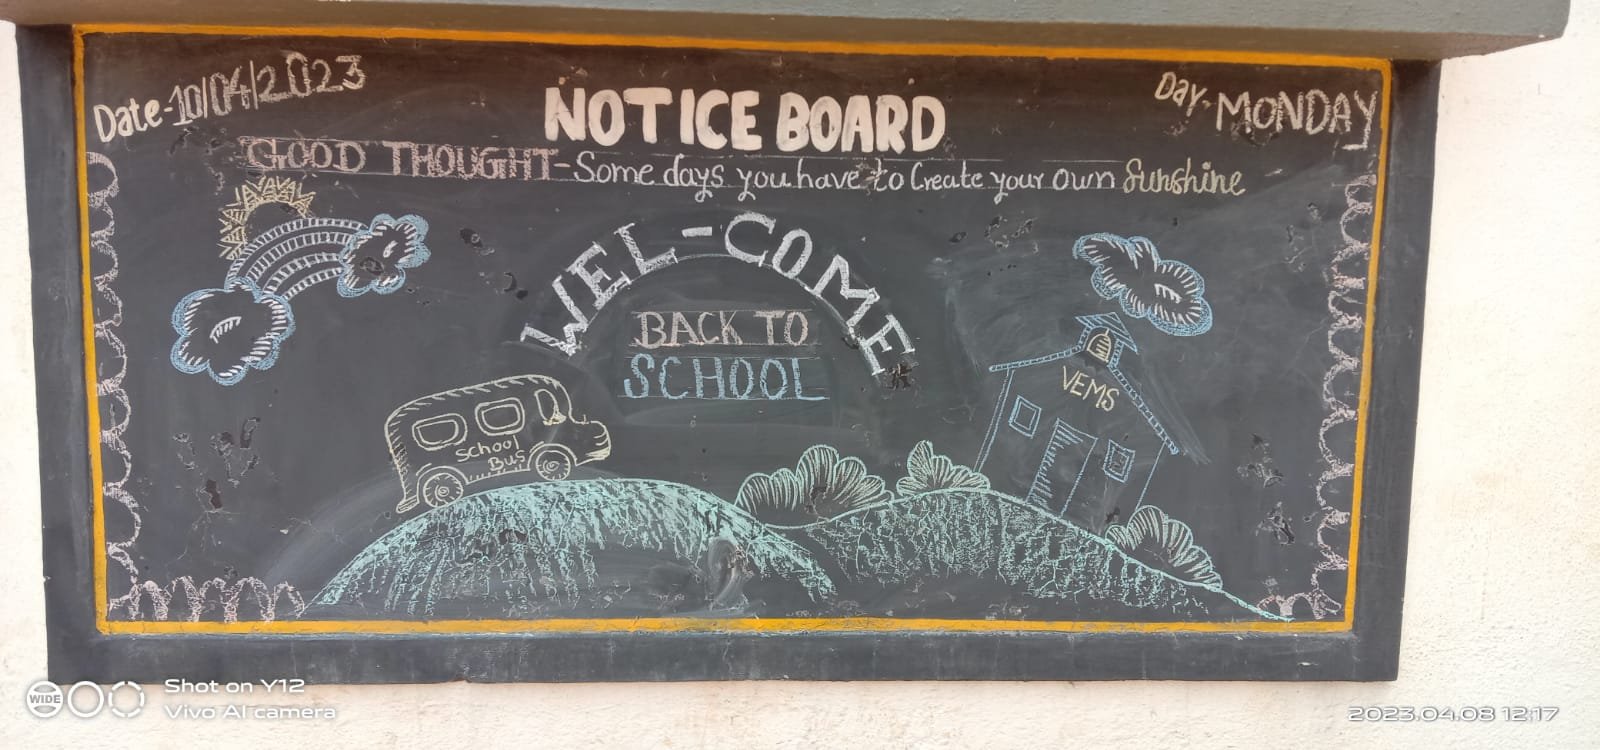 Date-10/04/2023
NOTICE BOARD
Day-MONDAY
GOOD THOUGHT-Some days you have to Create your own Sunshine
WEL-COME
BACK TO
SCHOOL
VEMS
School
Bus
WIDE
Shot on Y12
Vivo AI camera
2023.04.08 12:17